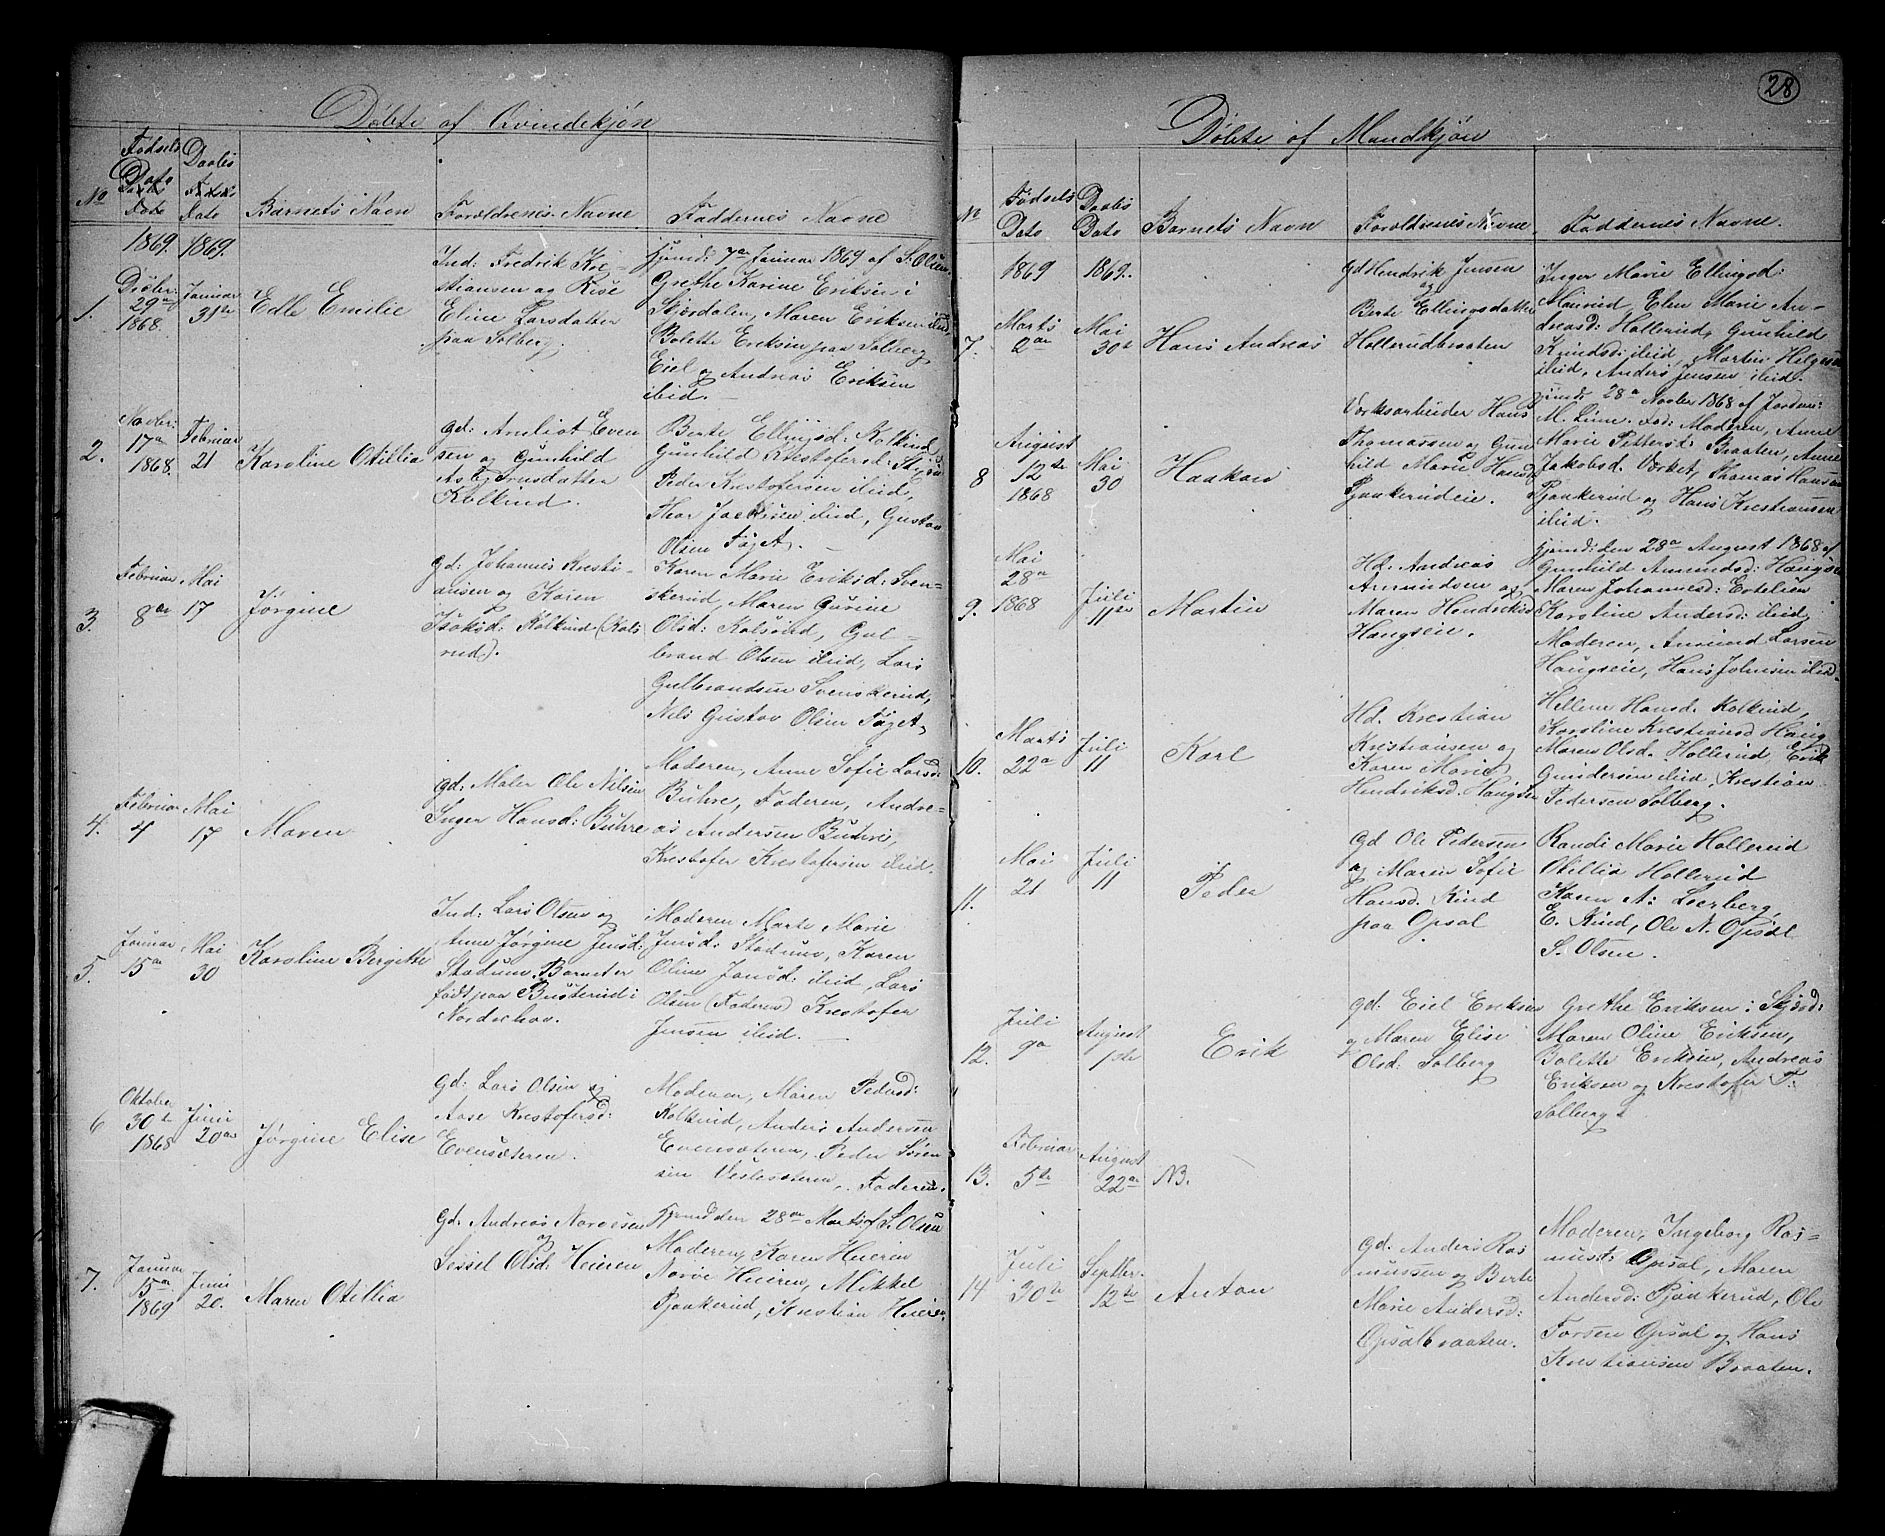 Døbte af Qvindekjøn
No
Fødsels Dato
Daabs Dato
Barnets Navn
Forældrenes Navne
Faddernes Navne
1869. 1869.
1.
Dcbr: 29de 1868.
Januar 31te
Edle Emilie
Ind: Fredrik Kri-
stiansen og Kise
Eline Larsdatter
paa Solberg.
hjemd: 7de Januar 1869 af S. Olsen.
Grethe Karine Eriksen i
Skjordalen, Maren Eriksen ibid,
Bolette Eriksen paa Solberg,
Eiel og Andreas Eriksen
ibid.
2.
Novbr: 17de 1868.
Februar 21
Karoline Otillia
gd: Anliot Even
sen og Gunhild
Asbjørnsdatter
Kolkind.
Berte Ellingsd: Kolkind
Gunhild Krestofersd:
Peder Krestofersen ibid,
Thor Jacksen ibid, Gustav
Olsen Foget.
3.
Februar 8de
Mai 17
Jørgine
gd: Johannes Kresti-
ansen og Karen
Isaksd: Kolkind (Kols
rud).
Karen Marie Eriksd: Sven-
skerud, Maren Gurine
Olsd: Kolsrud, Gul-
brand Olsen ibid, Lars
Gulbrandsen Svenskerud,
Nils Gustav Olsen Foget,
4.
Februar 4
Mai 17
Maren
gd: Maler Ole Nilsen
Inger Hansd: Buhre
Moderen, Anne Sofie Larsd:
Buhre, Faderen, Andre-
as Andersen Buhre,
Krestofer Krestofersen ibid.
5.
Januar 15de
Mai 30
Karoline Bergitte
Ind: Lars Olsen og
Anne Jørgine Jensd:
Stadum. Barnet er
født paa Busterud i
Norderhov.
Moderen Marte Marie
Jensd: Stadum, Karen
Oline Jensd: ibid, Lars
Olsen (Faderen) Krestofer
Jensen ibid.
6
Oktober 30te 1868
Juni 20de
Jørgine Elise
gd: Lars Olsen og
Aase Krestofersd:
Evensæteren.
Moderen, Maren Pedersd:
Kolkind, Anders Andersen
Evensæteren, Peder Søren
sen Veslesæteren, Faderen.
7.
Januar 15de 1869
Juni 20.
Maren Otillia
gd: Andreas Narvesen
og
Sessel Olsd: Heieren
Hjemd den 28de Marts af S. Olsen
Moderen, Karen Heieren
Narve Heieren, Mikkel
Pjaakerud, Kristian Heieren.
28
Døbte af Mandkjøn
No
Fødsels Dato
Daabs Dato
Barnets Navn
Forældrenes Navne
Faddernes Navne.
1869 1869.
7.
Marts 2den
Mai 30te
Hans Andreas
gd Hendrik Jensen
og
Berte Ellingsdatter
Hollerudbraaten
Inger Marie Ellingsd:
Maurud, Elen Marie An-
dreasd: Hollerud, Gunhild
Knudsd: ibid, Martin Helgesen
ibid, Anders Jensen ibid.
8
August 12te 1868
Mai 30
Haakon
Værksarbeider Hans
Thomassen og Gun
hild Marie Hansd
Pjaakerudeie.
hjemd: 28de Novbr 1868 af Jordm:
M. Lune. Fad: Moderen, Anne
Marie Pettersd: Braaten, Anne
Jakobsd. Værket, Thomas Hansen
Pjaakerud og Hans Krestiansen
ibid.
9.
Mai 28de 1868
Juli 11te
Martin
Hd. Andreas
Amundsen og
Maren Hendriksd
Haugseie.
hjemd: den 28de August 1868 af
Gunhild Amundsd: Haugseie
Maren Johannesd: Ertelien
Karoline Andersd: ibid,
Moderen, Amund Larsen
Haugseie, Hans Johnsen ibid.
10.
Marts 22de
Juli 11
Karl
Hd. Krestian
Kristiansen og
Karen Marie
Hendriksd. Haugseie
Hellene Hansd. Kolkind,
Karoline Krestiansd Haug
Maren Olsd. Hollerud, Erik
Gundersen ibid, Krestian
Pedersen Solberg.
11.
Mai 21
Juli 11
Peder
gd Ole Pedersen
og Maren Sofie
Hansd. Kind
paa Opsal
Randi Marie Hollerud
Otillia Hollerud
Karen A: Leerberg,
E. Kind, Ole N. Opsal
S. Olsen.
12.
Juli 9de
August 1ste
Erik
gd: Eiel Eriksen
og Maren Elise
Olsd: Solberg
Grethe Eriksen i Skjord:
Maren Oline Eriksen,
Bolette Eriksen, Andreas
Eriksen og Krestofer T:
Solberg.
13.
Februar 5te
August 22de
NB.
14
Juli 30te
Septbr. 12te
Anton
gd. Anders Ras
mussen og Berte
Marie Andersd:
Opsalbraaten.
Moderen, Ingeborg Ras-
musd: Opsal, Maren
Andersd: Pjaakerud, Ole
Torsen Opsal og Hans
Krestiansen Braaten.